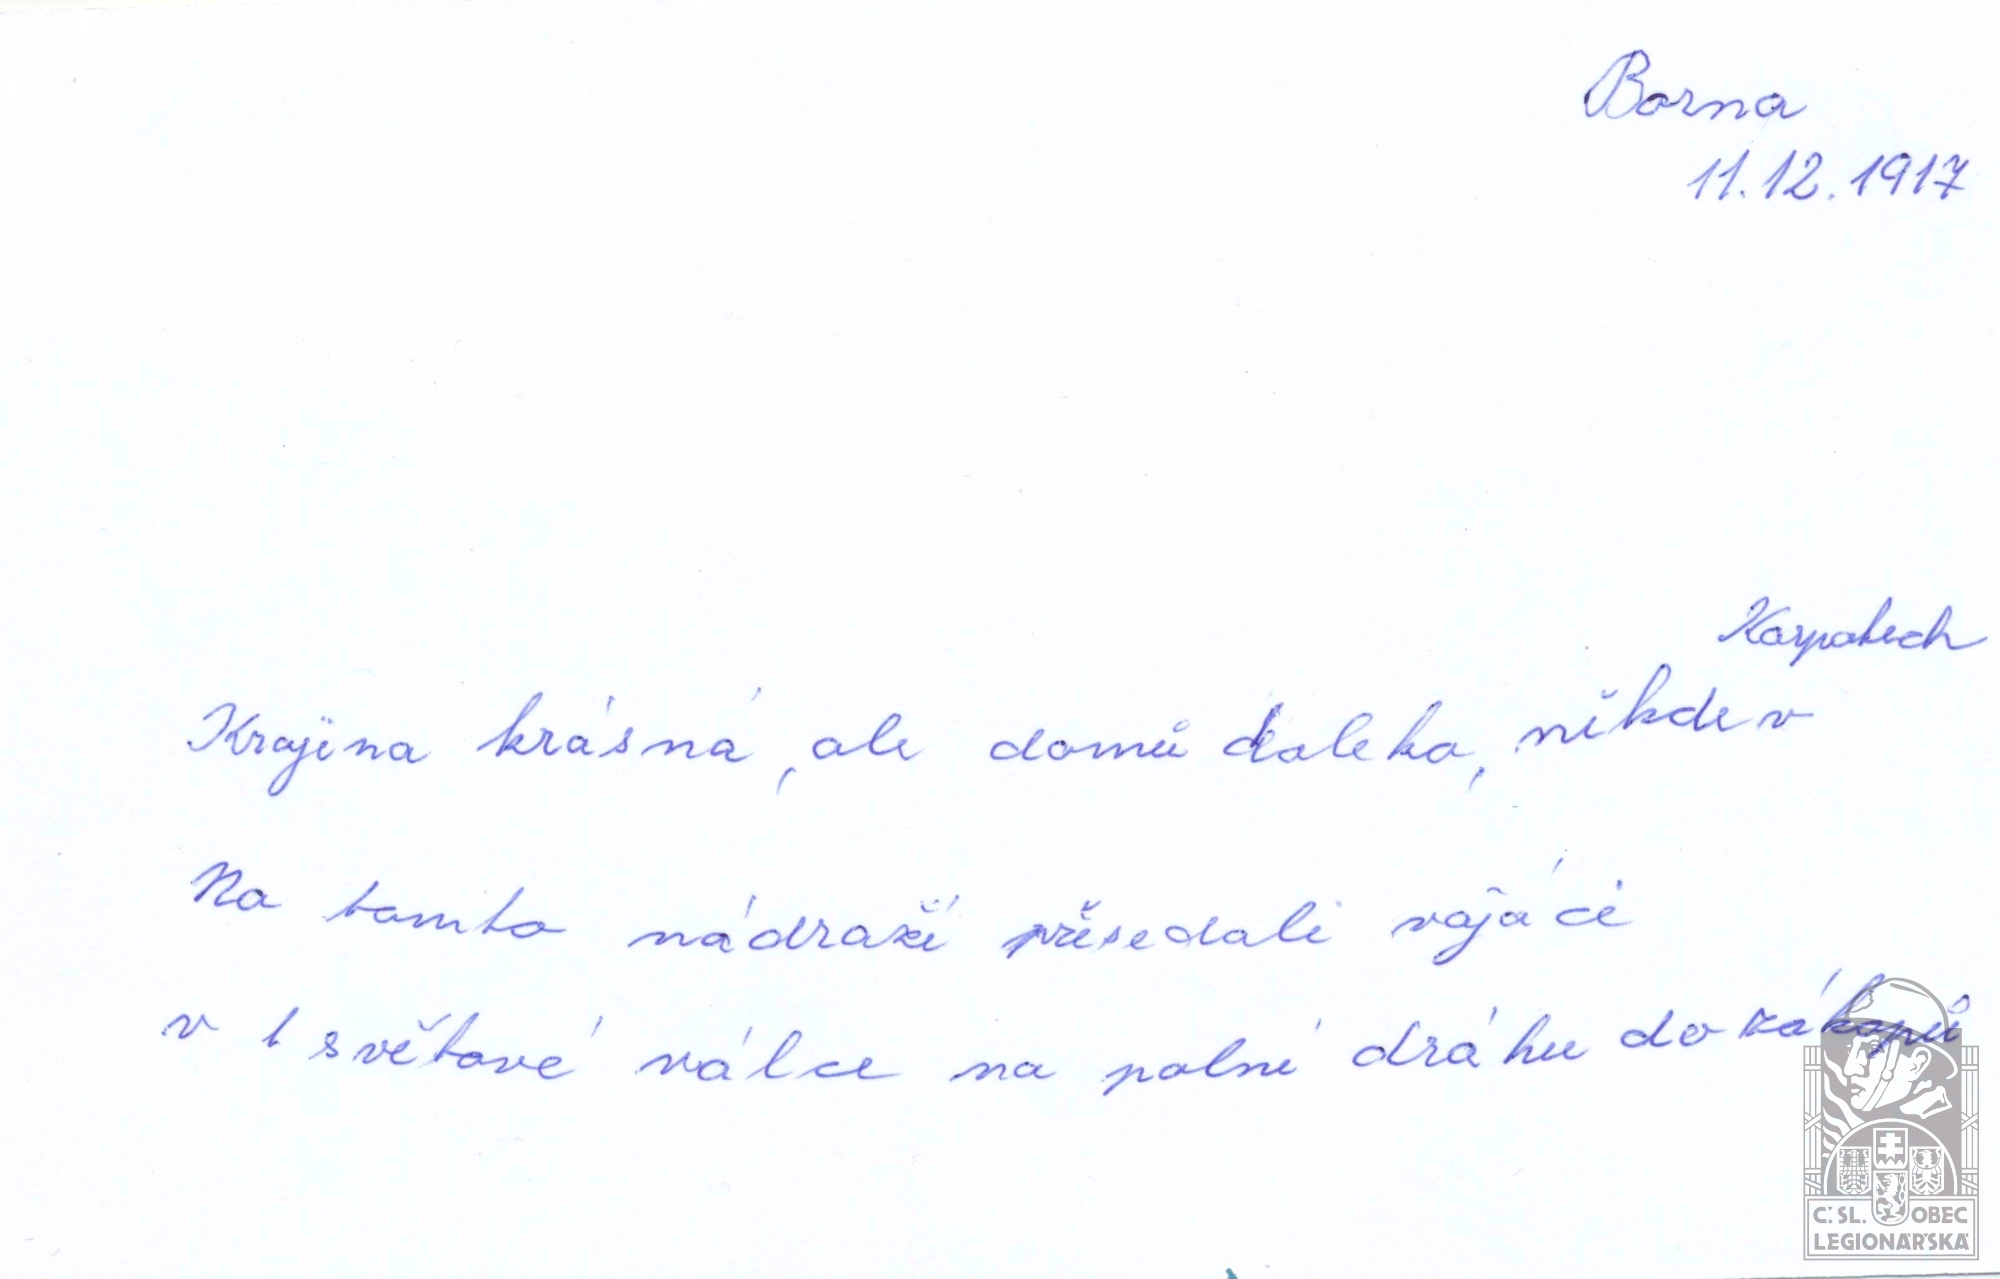 Borna
11.12.1917
Karpatech
Krajina krásná, ale domů daleko, někde v
Na tomto nádraží přesedali vojáci
v 1 světové válce na polní dráhu do zákopů
Č. SL. OBEC
LEGIONÁŘSKÁ